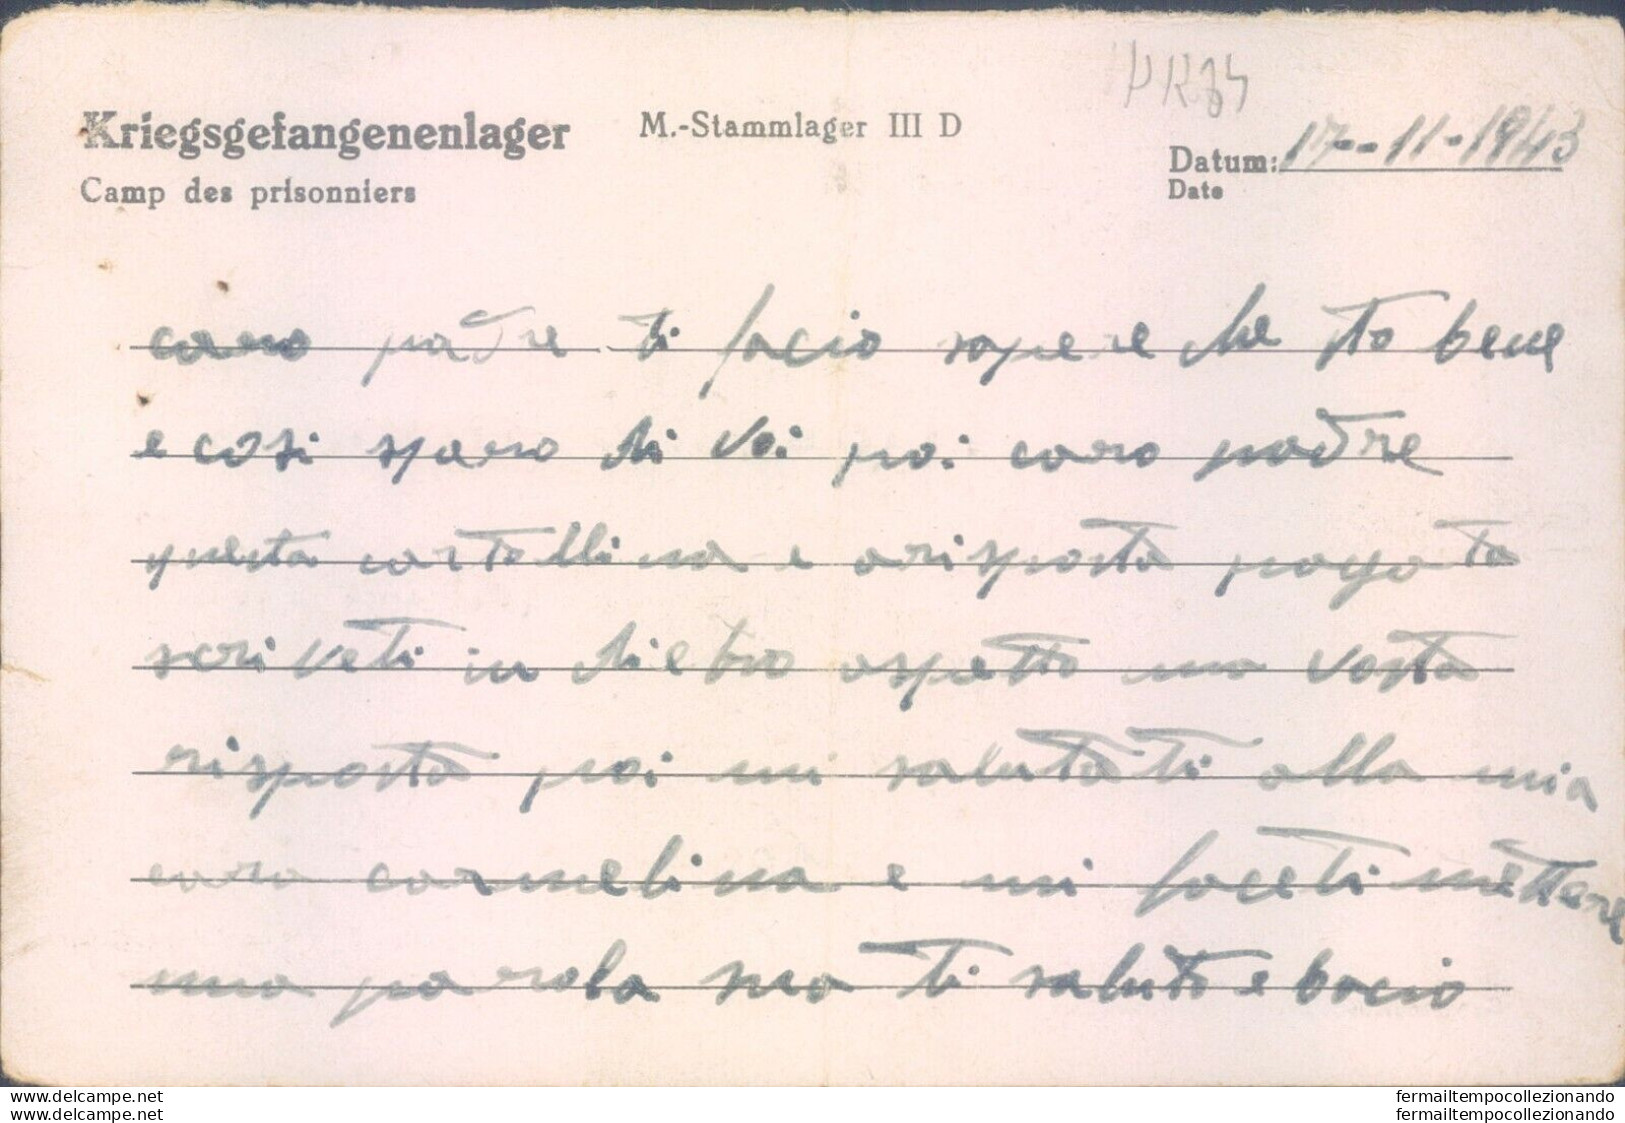 PR84
Kriegsgefangenenlager M.-Stammlager III D
Camp des prisonniers
Datum: 17-11-1943
Date
caro padre ti facio sapere che sto bene
e cosi spero di voi poi caro padre
questa cartollina e arisposta pagata
scriveti in dietro aspetto una vosta
risposta poi mi salutati alla mia
cara carmelina e mi faceti mettere
una parola sua ti saluto e bacio
delcampe.net
delcampe.net
fermailtempocollezionando
fermailtempocollezionando